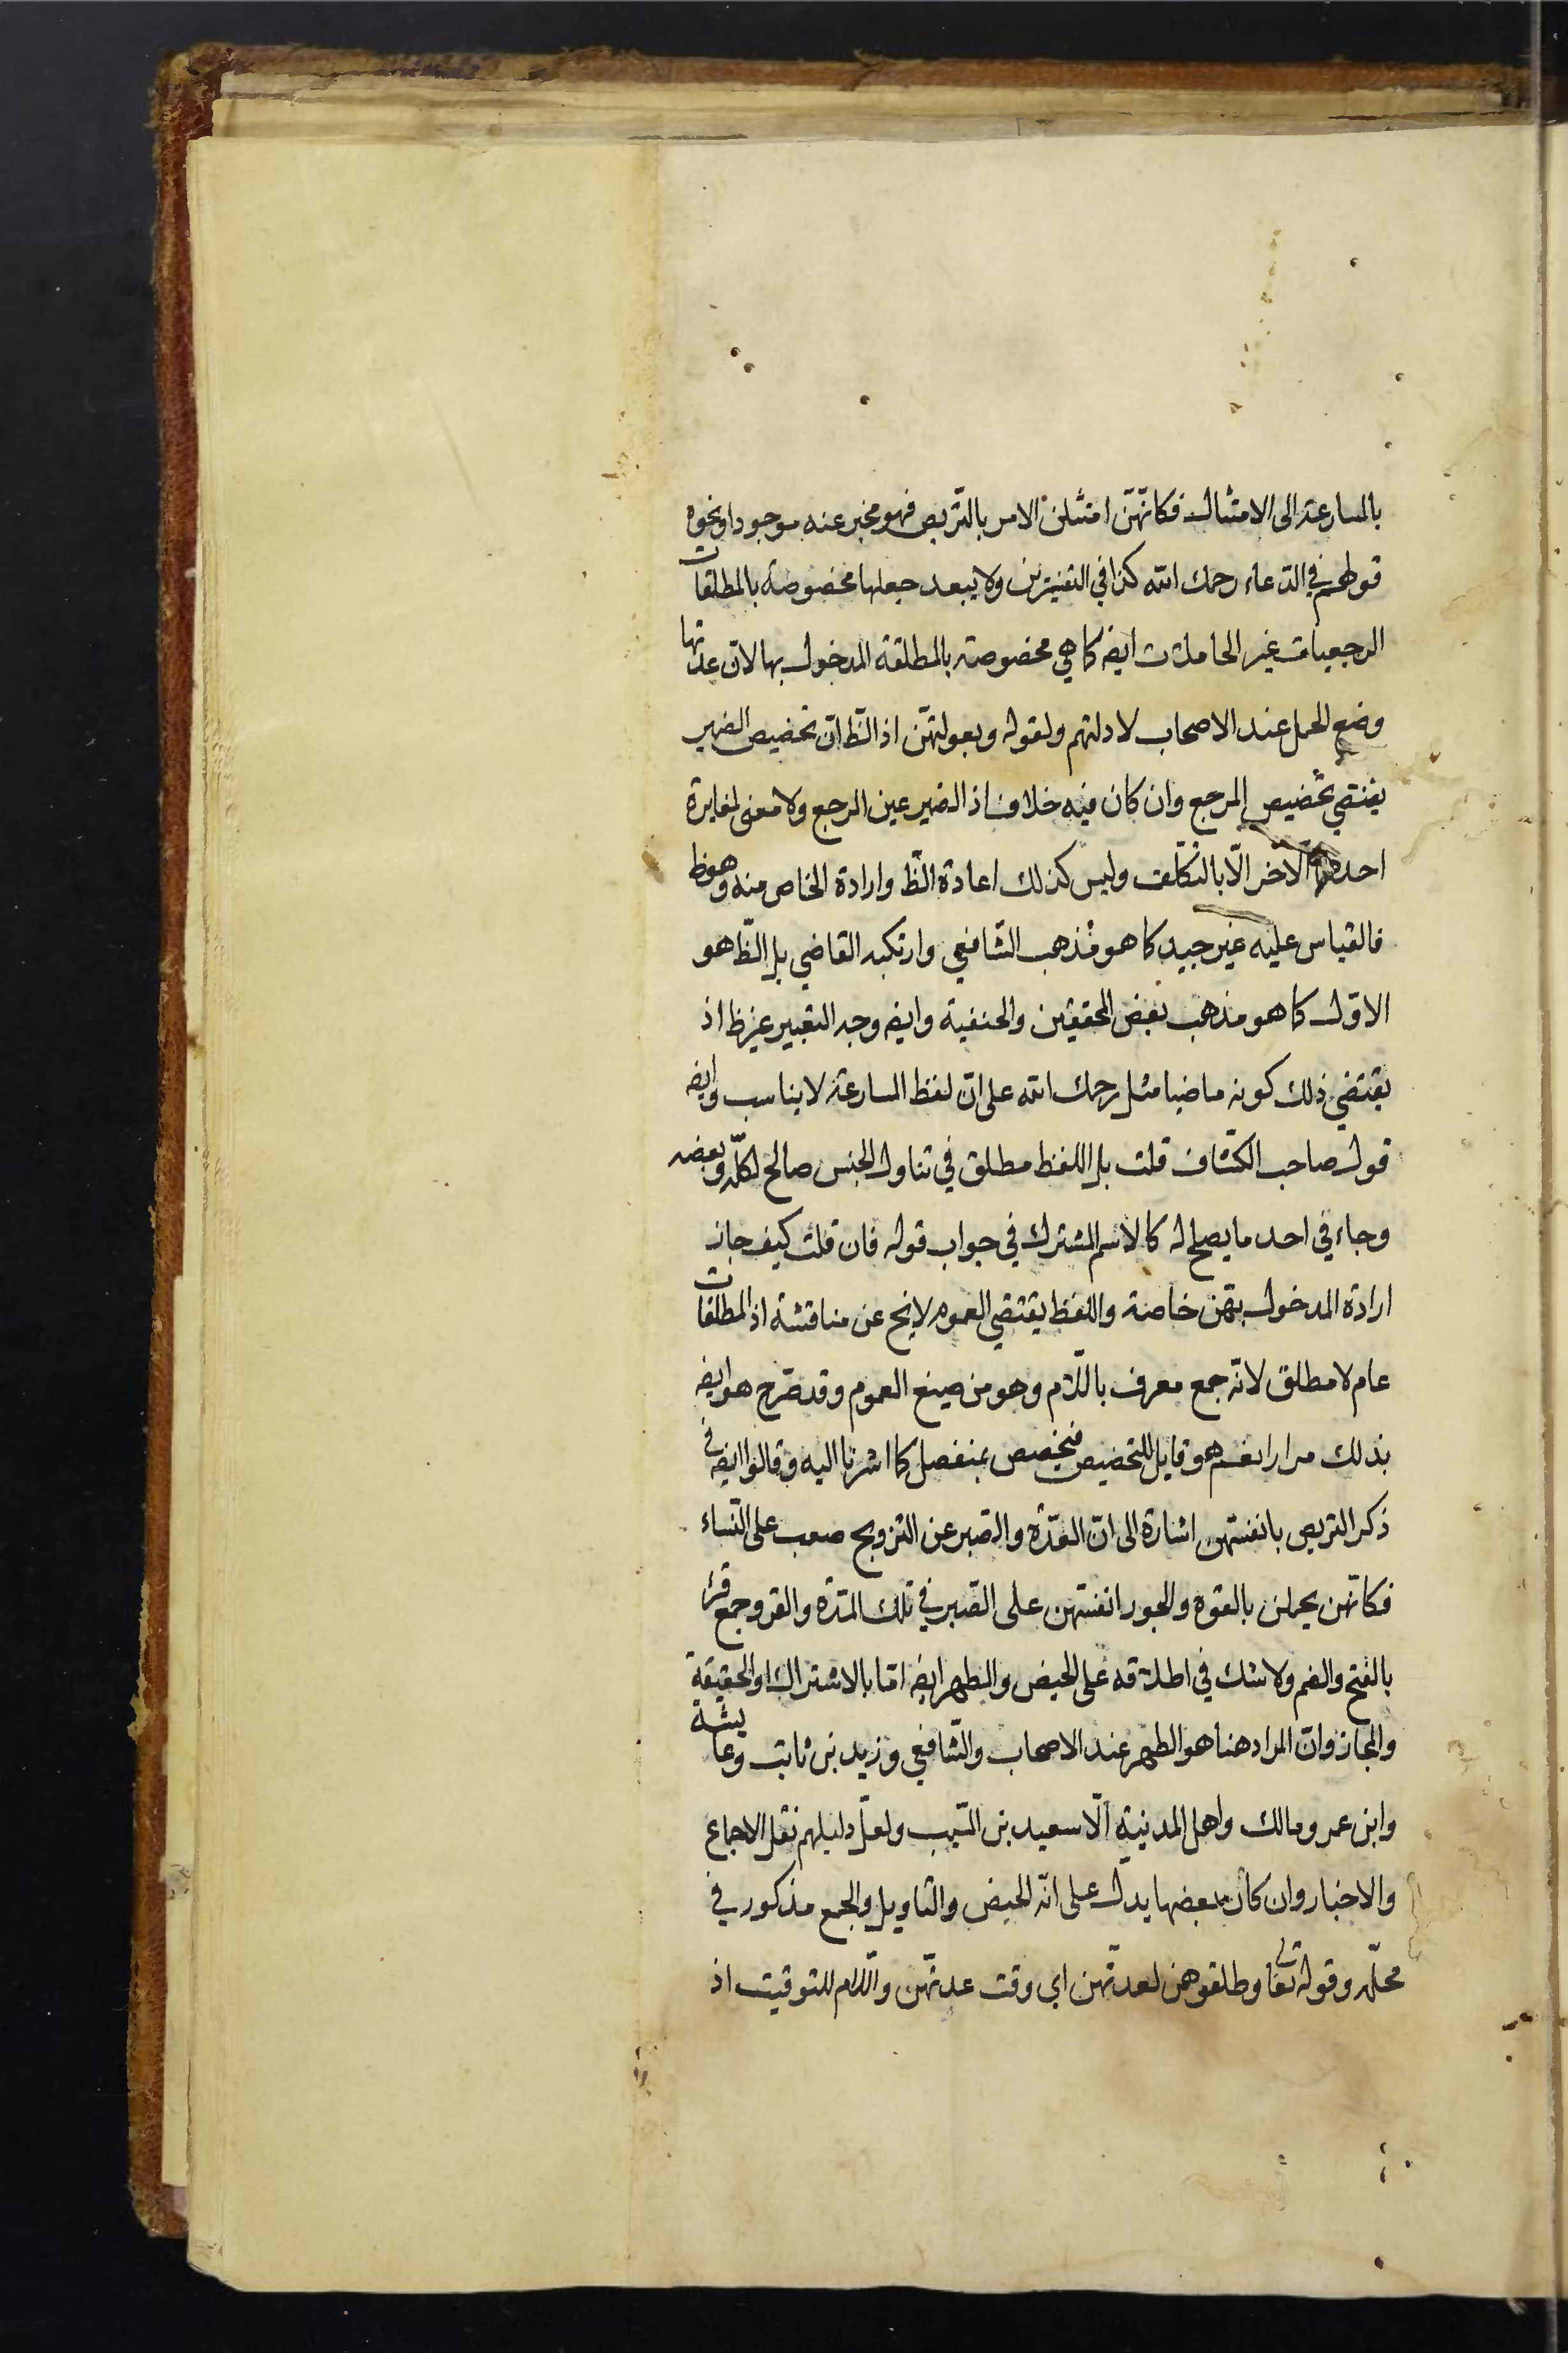 بالمسارعة الى الامتثال فكانهّنّ امتثلن الامر بالتّربص فهو مخبر عنه موجودا ونحوه
قولهم في الدّعاء رحمك الله كذا في التفسيرين ولا يبعد جعلها مخصوصة بالمطلقات
الرجعيات غير الحاملات ايضه كما هي مخصوصة بالمطلقة المدخول بها لانّ عدتها
وضع الحمل عند الاصحاب لادلتهم ولقوله وبعولتهّن اذ الظّ انّ تخصيص الضمير
يقتضي تخصيص المرجع وان كان فيه خلاف اذ الضمير عين المرجع ولا معنى لمغايرة
احدهما الآخر الّا بالتكلّف وليس كذلك اعادة الظّ وارادة الخاص منه وهو ظ
فالقياس عليه غير جيد كما هو مذهب الشافعي وارتكبه القاضي بل الظّ هو
الاوّل كما هو مذهب بعض المحققين والحنفية وايضه وجه التعبير غير ظ اذ
يقتضي ذلك كونه ماضيا مثل رحمك الله على انّ لفظ المسارعة لا يناسب وايضه
قول صاحب الكشّاف قلت بل اللفظ مطلق في تناول الجنس صالح لكلّه وبعضه
وجاء في احد ما يصلح له كالاسم المشترك في جواب قوله فان قلت كيف جاز
ارادة المدخول بهّن خاصة واللفظ يقتضي العموم لا يخ عن مناقشة اذ المطلقات
عام لا مطلق لانّه جمع معرف باللّام وهو من صيغ العموم وقد صّرح هو ايضه
بذلك مرارا نعم هو قابل للتخصيص فيخصص بمنفصل كما اشرنا اليه وقالوا ايضه في
ذكر التربص بانفسهن اشارة الى انّ العدّة والصّبر عن التزويج صعب على النّساء
فكانّهن يحملن بالقوة والجور انفسهن على الصّبر في تلك المدّة والقروء جمع قرء
بالفتح والضم ولا شك في اطلاقه على الحيض والطهر ايضه امّا بالاشتراك او الحقيقة
والمجاز وانّ المراد هنا هو الطهر عند الاصحاب والشّافعي وزيد بن ثابت وعايشة
وابن عمر ومالك واهل المدينة الّا سعيد بن المسّيب ولعلّ دليلهم نقل الاجماع
والاخبار وان كان بعضها يدلّ على انّه الحيض والتاويل والجمع مذكور في
محلّه وقوله تعالى وطلقوهن لعدتّهن اي وقت عدتّهن واللّام للتوقيت اذ